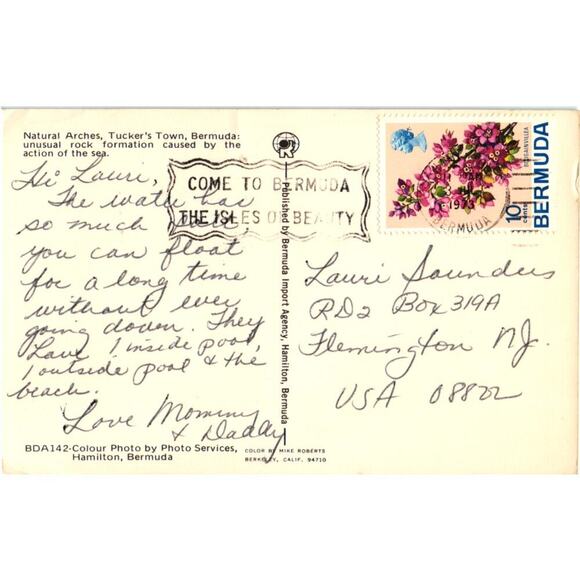 Natural Arches, Tucker's Town, Bermuda:
unusual rock formation caused by the
action of the sea.
Hi Lauri,
The water has
so much
you can float
for a long time
without ever
going down. They
have 1 inside pool,
1 outside pool & the
beach.
Love Mommy
& Daddy
BDA142-Colour Photo by Photo Services,
Hamilton, Bermuda
COLOR BY MIKE ROBERTS
BERKELEY, CALIF. 94710
R
Published by Bermuda Import Agency, Hamilton, Bermuda
COME TO BERMUDA
THE ISLES OF BEAUTY
BOUGAINVILLEA
10 cents
BERMUDA
1973
BERMUDA
Lauri Saunders
RD2 Box 319A
Flemington NJ.
USA 08822